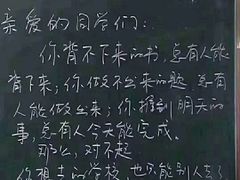 亲爱的同学们：
你背不下来的书，总有人能
背下来；你做不出来的题，总有
人能做出来；你推到明天的
事，总有人今天能完成。
那么，对不起
你想去的学校，也只能别人去了